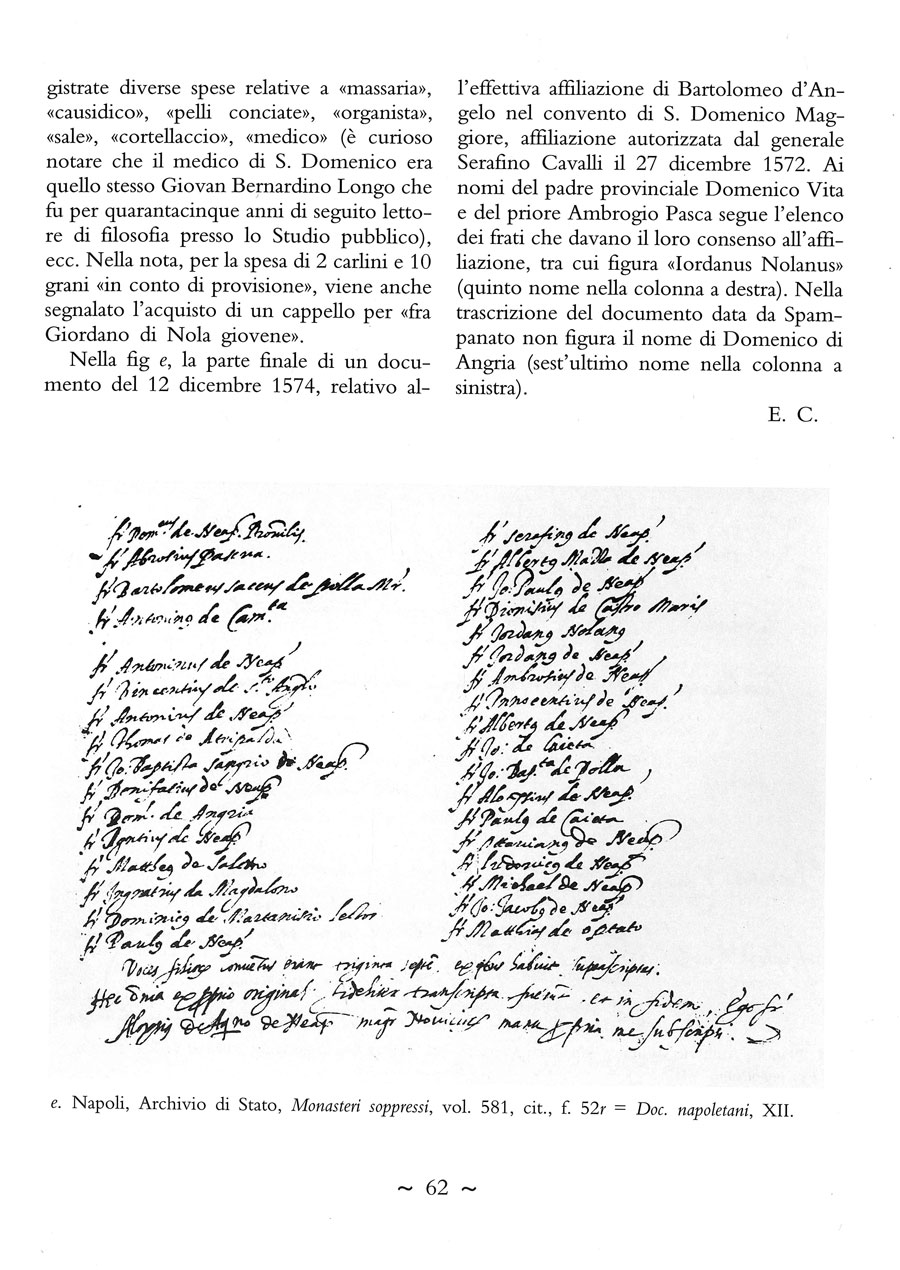 gistrate diverse spese relative a «massaria»,
«causidico», «pelli conciate», «organista»,
«sale», «cortellaccio», «medico» (è curioso
notare che il medico di S. Domenico era
quello stesso Giovan Bernardino Longo che
fu per quarantacinque anni di seguito letto-
re di filosofia presso lo Studio pubblico),
ecc. Nella nota, per la spesa di 2 carlini e 10
grani «in conto di provisione», viene anche
segnalato l'acquisto di un cappello per «fra
Giordano di Nola giovene».
Nella fig e, la parte finale di un docu-
mento del 12 dicembre 1574, relativo al-
l'effettiva affiliazione di Bartolomeo d'An-
gelo nel convento di S. Domenico Mag-
giore, affiliazione autorizzata dal generale
Serafino Cavalli il 27 dicembre 1572. Ai
nomi del padre provinciale Domenico Vita
e del priore Ambrogio Pasca segue l'elenco
dei frati che davano il loro consenso all'affi-
liazione, tra cui figura «Iordanus Nolanus»
(quinto nome nella colonna a destra). Nella
trascrizione del documento data da Spam-
panato non figura il nome di Domenico di
Angria (sest'ultimo nome nella colonna a
sinistra).
E. C.
fr Dom.cus de Neap.
fr Abrosius Pascua.
fr Bartolomeus de Polla Mr.
fr Antoninus de Cam.ta
fr Antoninus de Neap
fr Vincentius de Anglo
fr Antonius de Neap
fr Thomas de Atripalda
fr Jo: Baptista Sangrio de Neap.
fr Bonifatius de Neap
fr Dom. de Angria
fr de Neap
fr Mattheus de Salerno
fr Ingnatius da Magdalono
fr Dominicus de lector
fr Paulus de Neap.
fr Serafinus de Neap.
fr Albertus de Neap
fr Jo: Paulus de Neap
fr Dionisius de Castro Maris
fr Jordanus Nolanus
fr Jordanus de Neap.
fr Ambrosius de Neap
fr Innocentius de Neap.
fr Albertus de Neap
fr Jo: de Caieta
fr Jo: Bap.ta de Polla
fr Aloysius de Neap.
fr Paulus de Caieta
fr Ottavianus de Neap
fr Ludovicus de Neap
fr Michael de Neap
fr Jo: Jacobus de Neap.
fr Matthias de optato
Voces triginta septe
Hec original fideliter transcripta et in fidem, Ego fr
Aloysius de Aqno de Neap magr Noviciis manu ppria me subscripsi.
e. Napoli, Archivio di Stato, Monasteri soppressi, vol. 581, cit., f. 52r = Doc. napoletani, XII.
~ 62 ~